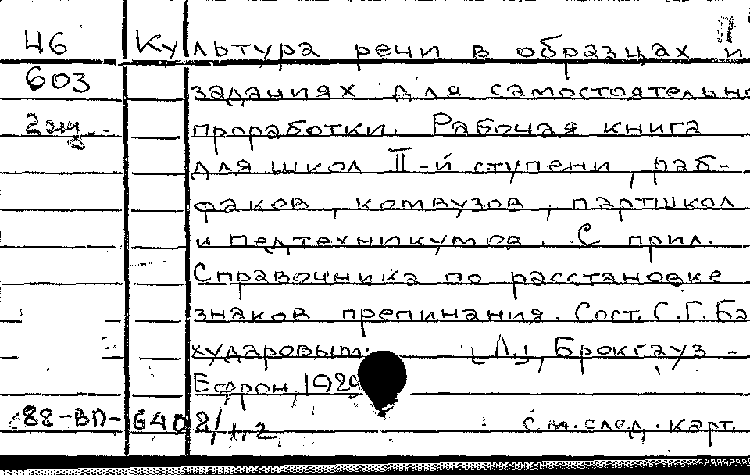 46 Культура речи в образцах и
603 заданиях для самостоятельно
2 экз. проработки. Рабочая книга
для школ II-й ступени, раб-
факов, комвузов, партшкол
и педтехникумов. С прил.
Справочника по расстановке
знаков препинания. Сост. С.Г. Ба
хударовым. [Л.], Брокгауз-
Ефрон, 192
88-ВП-6408/1,2 с.м. след. карт.